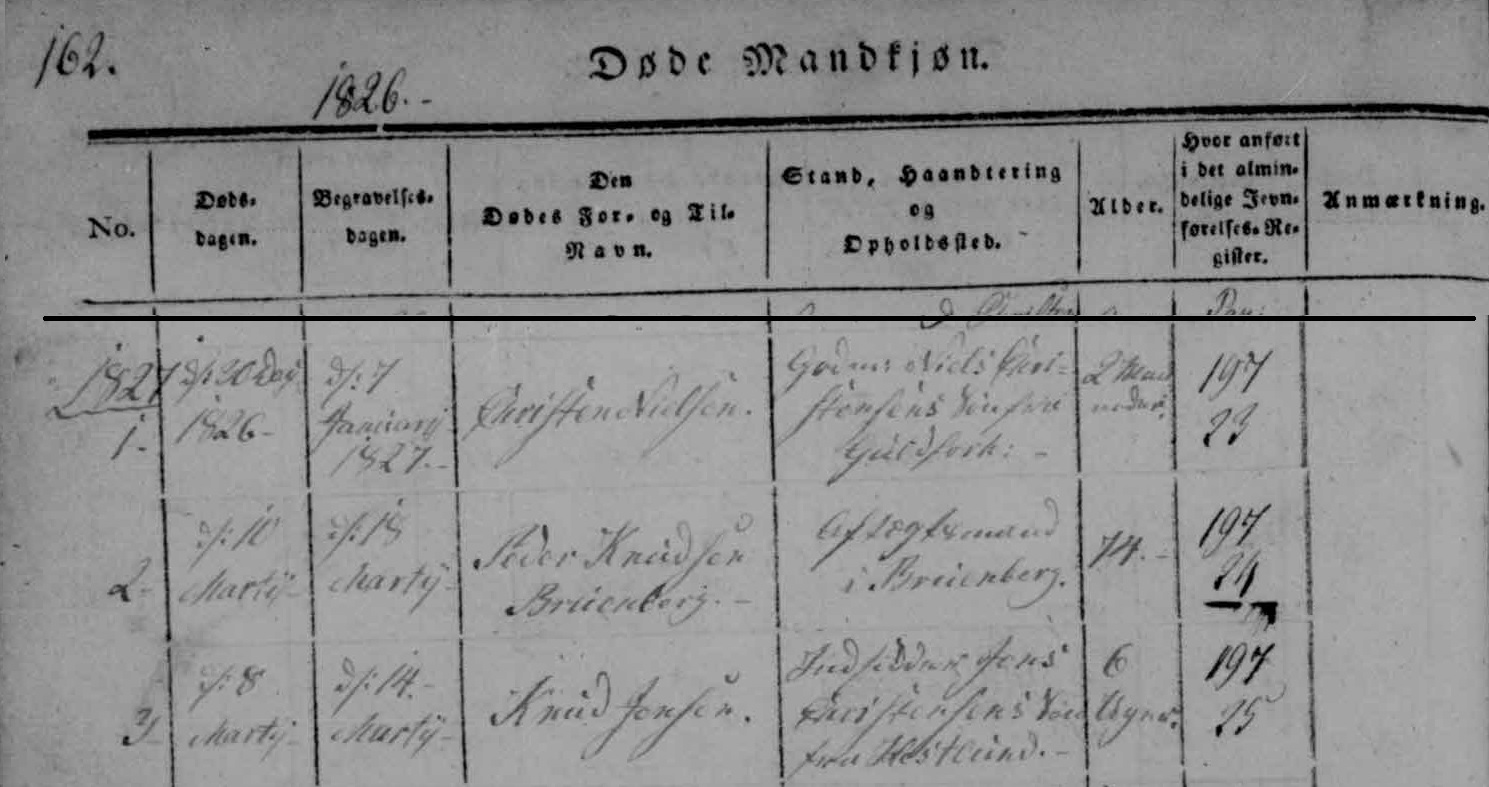 162.
Døde Mandkjøn.
1826.-
No.
Døds-
dagen.
Begravelses-
dagen.
Den
Dødes For- og Til-
Navn.
Stand, Haandtering
og
Opholdssted.
Alder.
Hvor anført
i det almin-
delige Jevn-
førelses-Re-
gister.
Anmærkning.
1827
1.
d: 20
1826-
d: 7
Januarij
1827.-
Christen Nielsen.
Niels Chri-
stensens Søn fra
2
197
23
2.
d: 10
Martij-
d: 18
Martij-
Peder Knudsen
Bruenberg.-
Aftægtsmand
i Bruenberg.
74.-
197
24
3.
d: 8
Martij-
d: 14.-
Martij-
Knud Jensen.
Indsidder Jens
Christensens Søn
fra Hostlund.-
6
Uger.
197
25